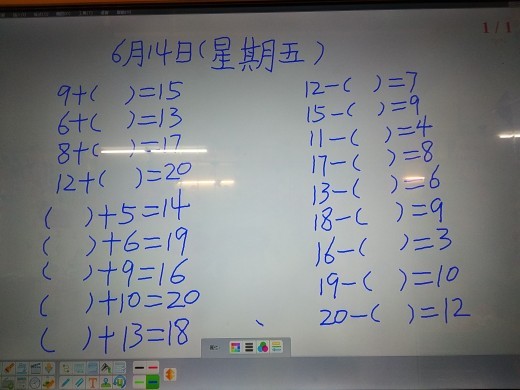 1/1
6月14日(星期五)
9+( )=15
6+( )=13
8+( )=17
12+( )=20
( )+5=14
( )+6=19
( )+9=16
( )+10=20
( )+13=18
12-( )=7
15-( )=9
11-( )=4
17-( )=8
13-( )=6
18-( )=9
16-( )=3
19-( )=10
20-( )=12